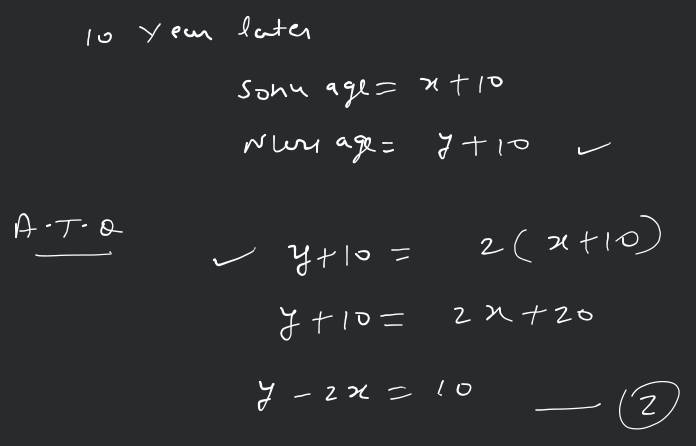 10 Year later
Sonu age = x+10
Nuri age = y+10 ✓
A.T.Q
✓ y+10 = 2(x+10)
y+10 = 2x+20
y-2x = 10 — ②